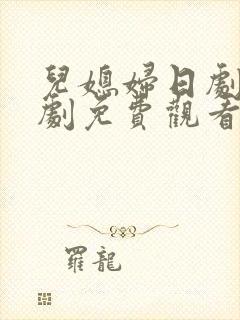 兒媳婦日劇
劇免費觀看
羅龍